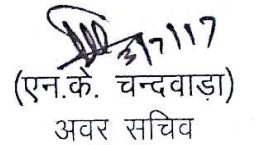 3/7/17
(एन.के. चन्दवाड़ा)
अवर सचिव